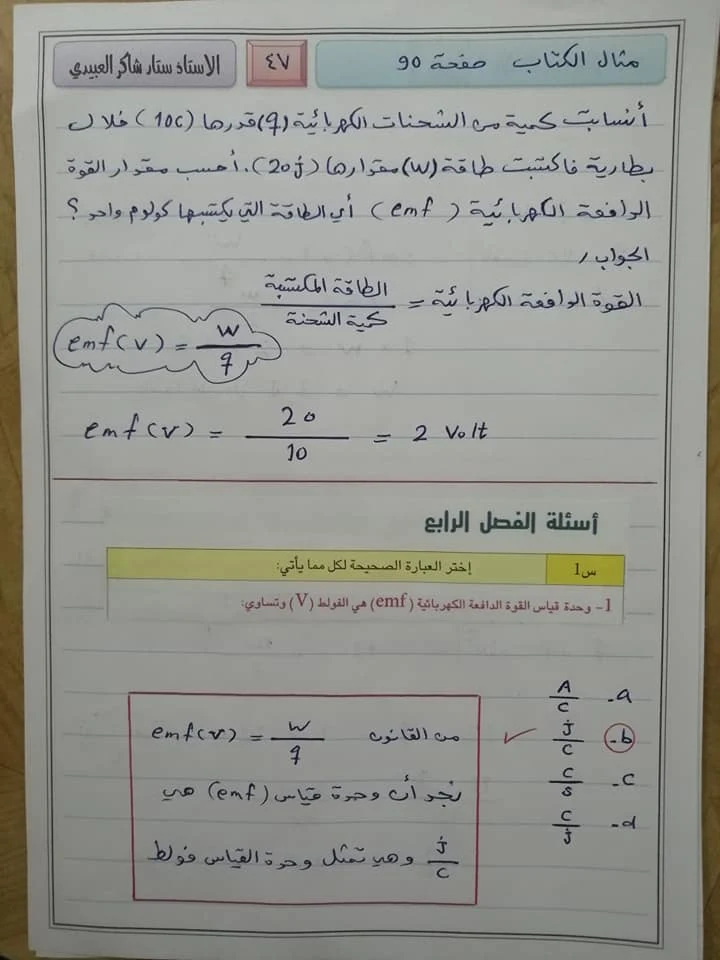 مثال الكتاب صفحة 90
٤٧
الاستاذ ستار شاكر العبيدي
أنسابت كمية من الشحنات الكهربائية (q) قدرها (10c) خلال
بطارية فاكتسبت طاقة (w) مقدارها (20j). أحسب مقدار القوة
الدافعة الكهربائية (emf) أي الطاقة التي يكتسبها كولوم واحد؟
الجواب /
القوة الدافعة الكهربائية = الطاقة المكتسبة / كمية الشحنة
emf(v) = w/q
emf(v) = 20/10 = 2 Volt
أسئلة الفصل الرابع
س1 إختر العبارة الصحيحة لكل مما يأتي:
1- وحدة قياس القوة الدافعة الكهربائية (emf) هي الفولط (V) وتساوي:
a- A/C
b- J/C ✓
c- C/S
d- C/J
من القانون emf(v) = w/q
نجد أن وحدة قياس (emf) هي
J/C وهي تمثل وحدة القياس فولط